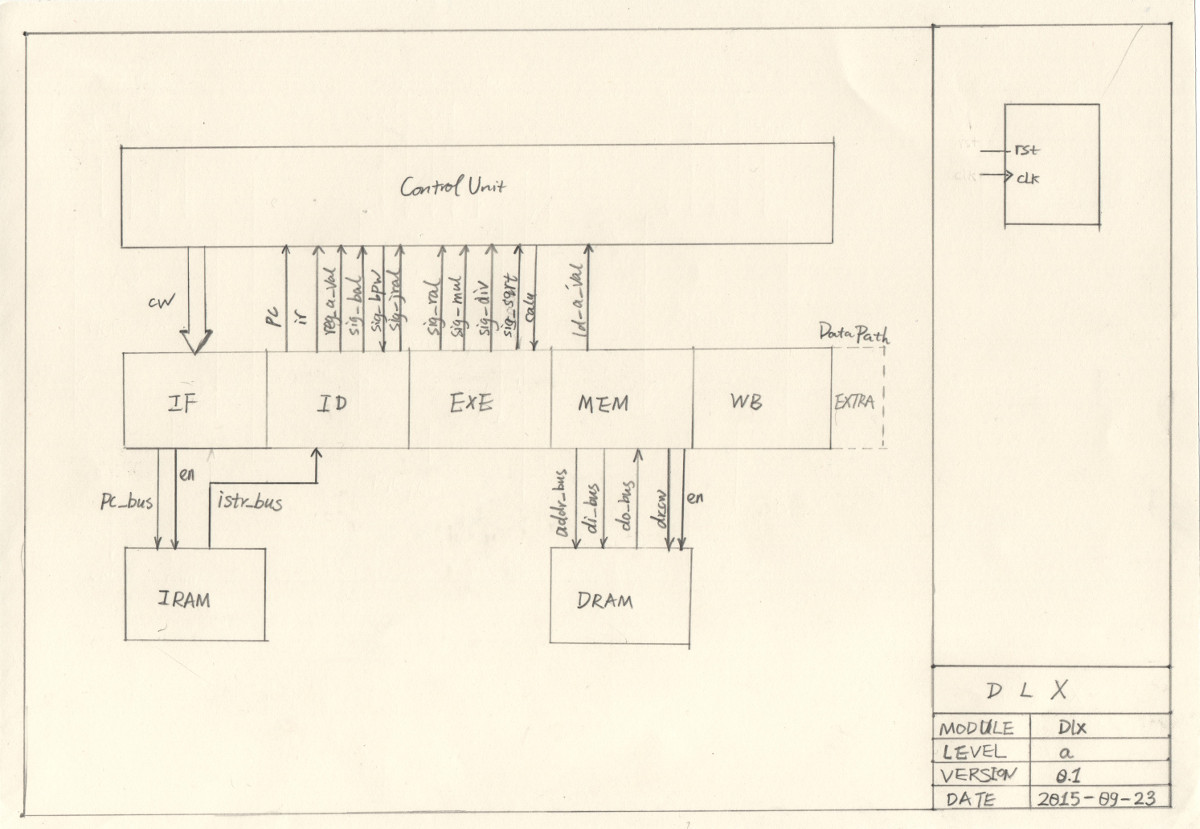 Control Unit
rst
clk
cw
pc
ir
reg_a_val
sig_bal
sig_bpw
sig_jral
sig_ral
sig_mul
sig_div
sig_sqrt
calu
ld_a_val
DataPath
IF
ID
EXE
MEM
WB
EXTRA
pc_bus
en
istr_bus
addr_bus
di_bus
do_bus
drcw
en
IRAM
DRAM
DLX
MODULE Dlx
LEVEL a
VERSION 0.1
DATE 2015-09-23